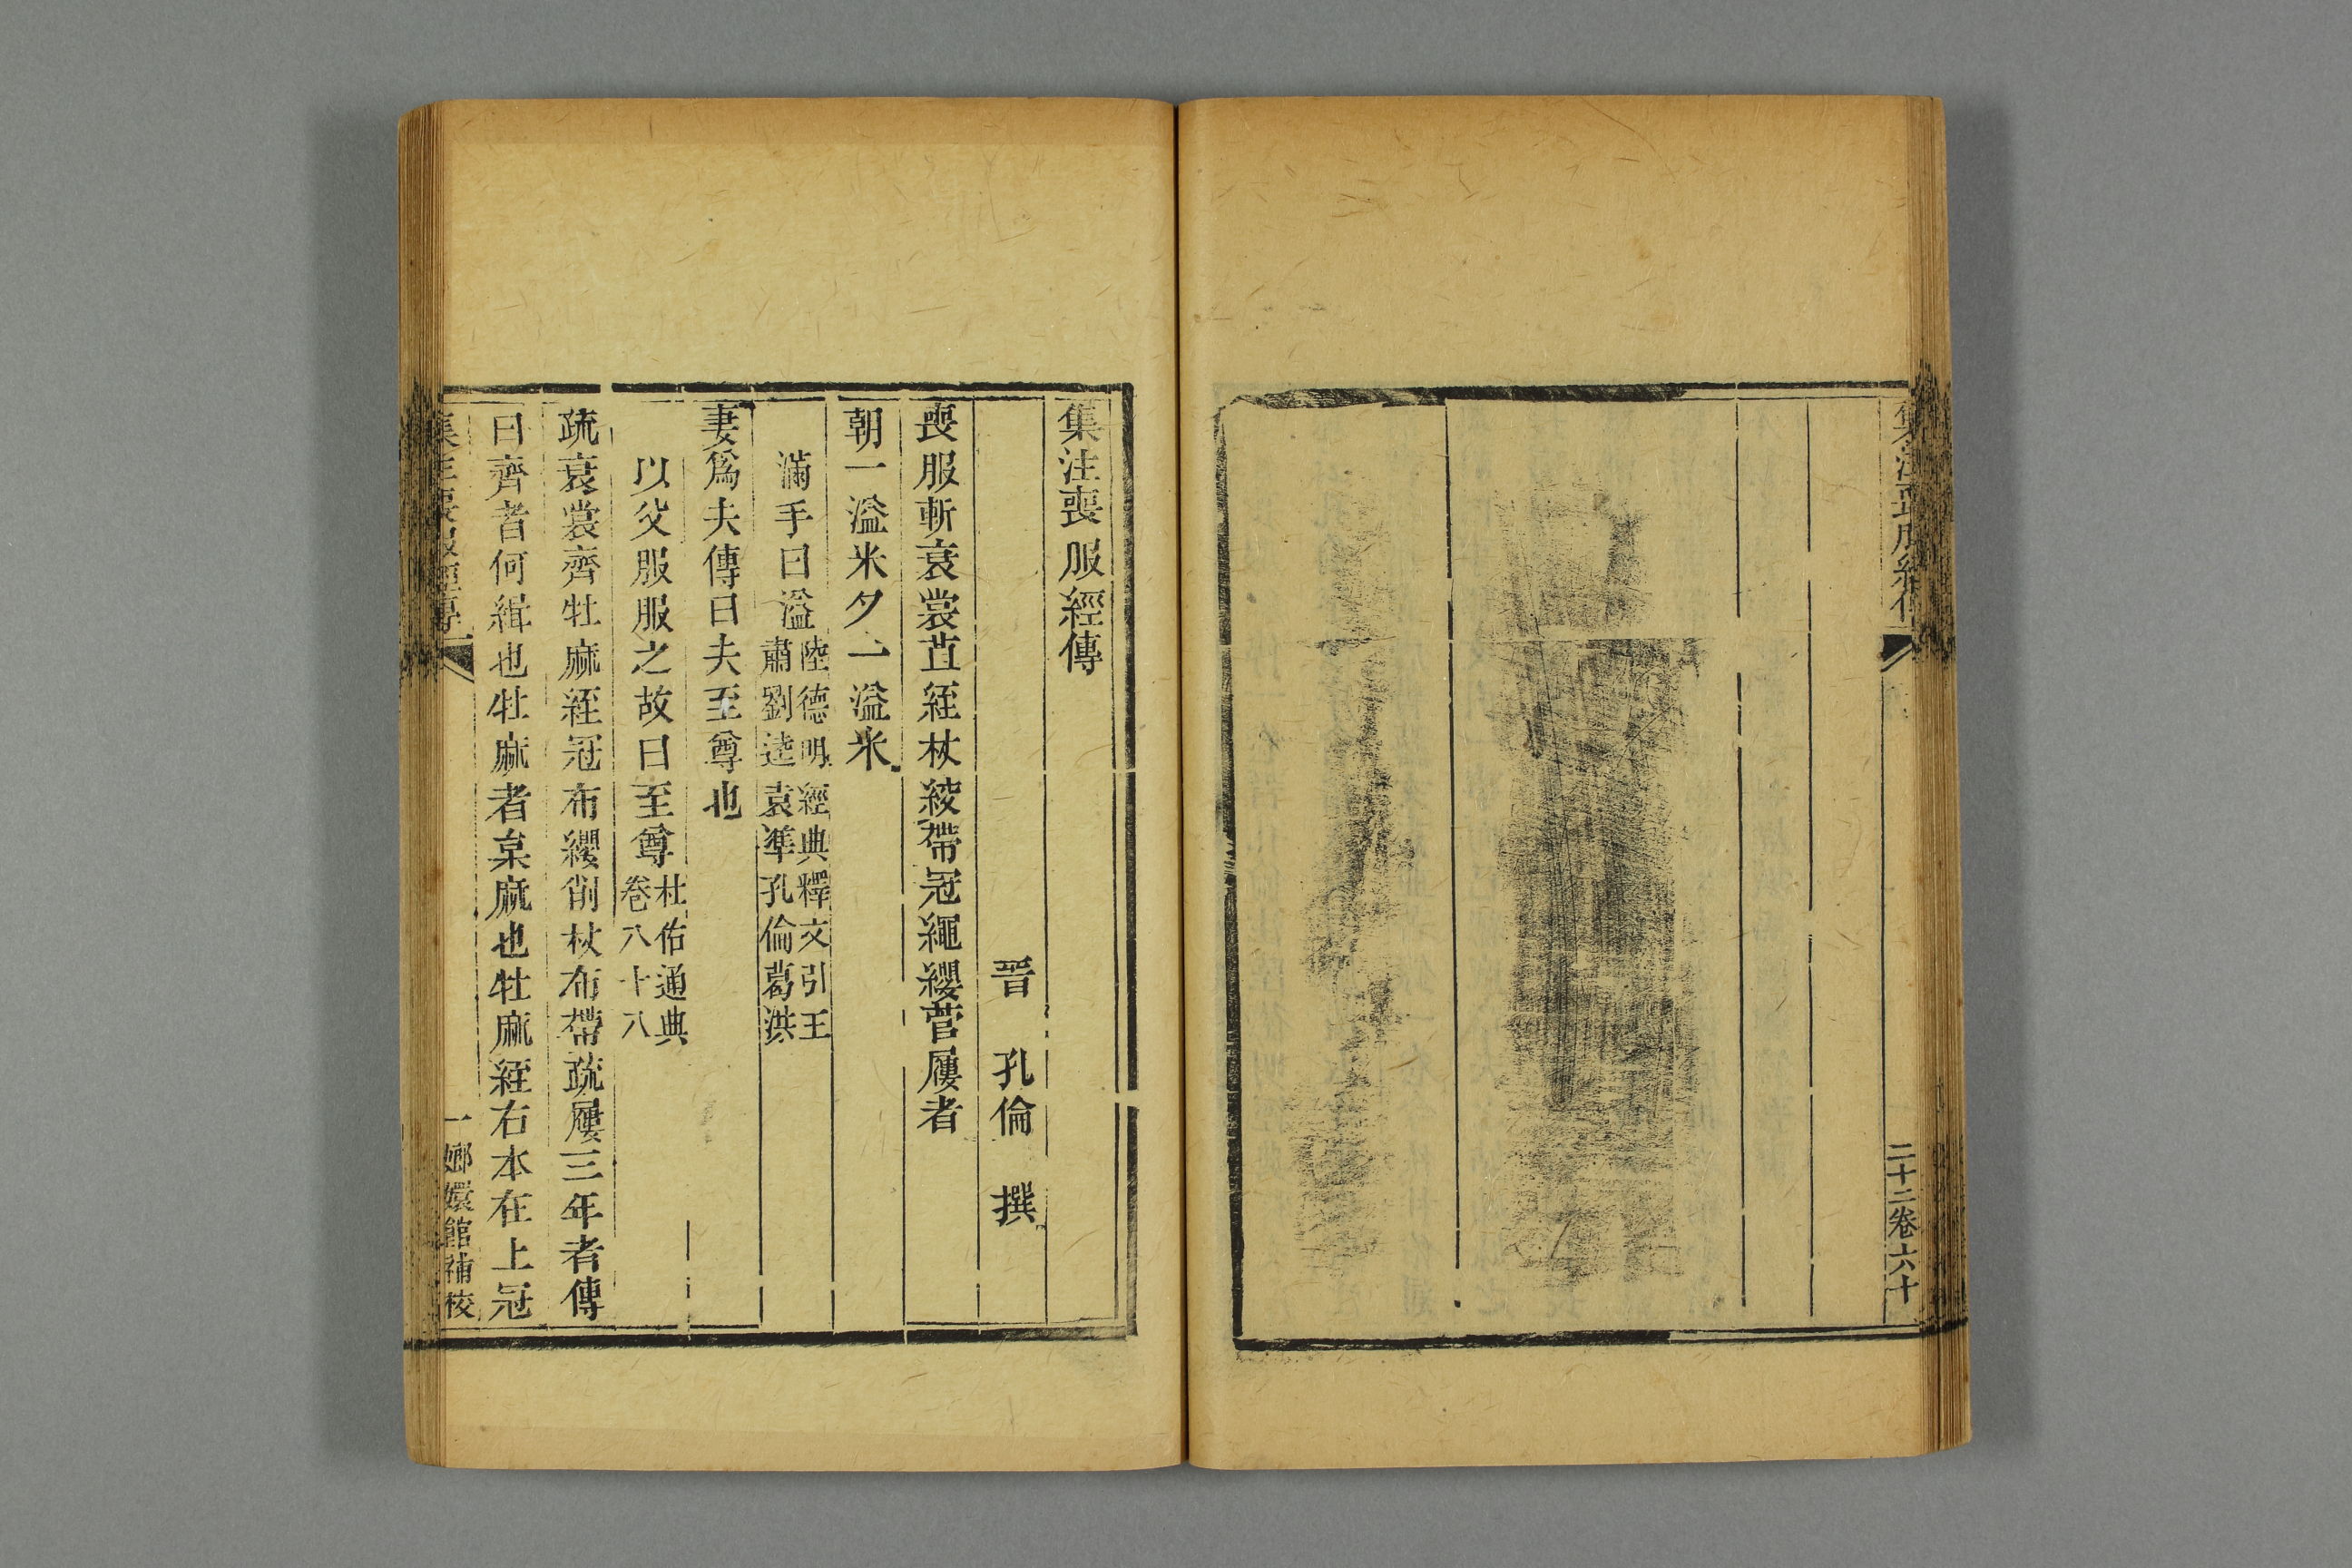 集注喪服經傳
二十二卷六十
集注喪服經傳
晉 孔倫 撰
喪服斬衰裳苴絰杖絞帶冠繩纓菅屨者
朝一溢米夕一溢米
滿手曰溢陸德明經典釋文引王
肅劉逵袁準孔倫葛洪
妻爲夫傳曰夫至尊也
以父服服之故曰至尊杜佑通典
卷八十八
疏衰裳齊牡麻絰冠布纓削杖布帶疏屨三年者傳
曰齊者何緝也牡麻者枲麻也牡麻絰右本在上冠
集注喪服經傳
一 嫏嬛館補校